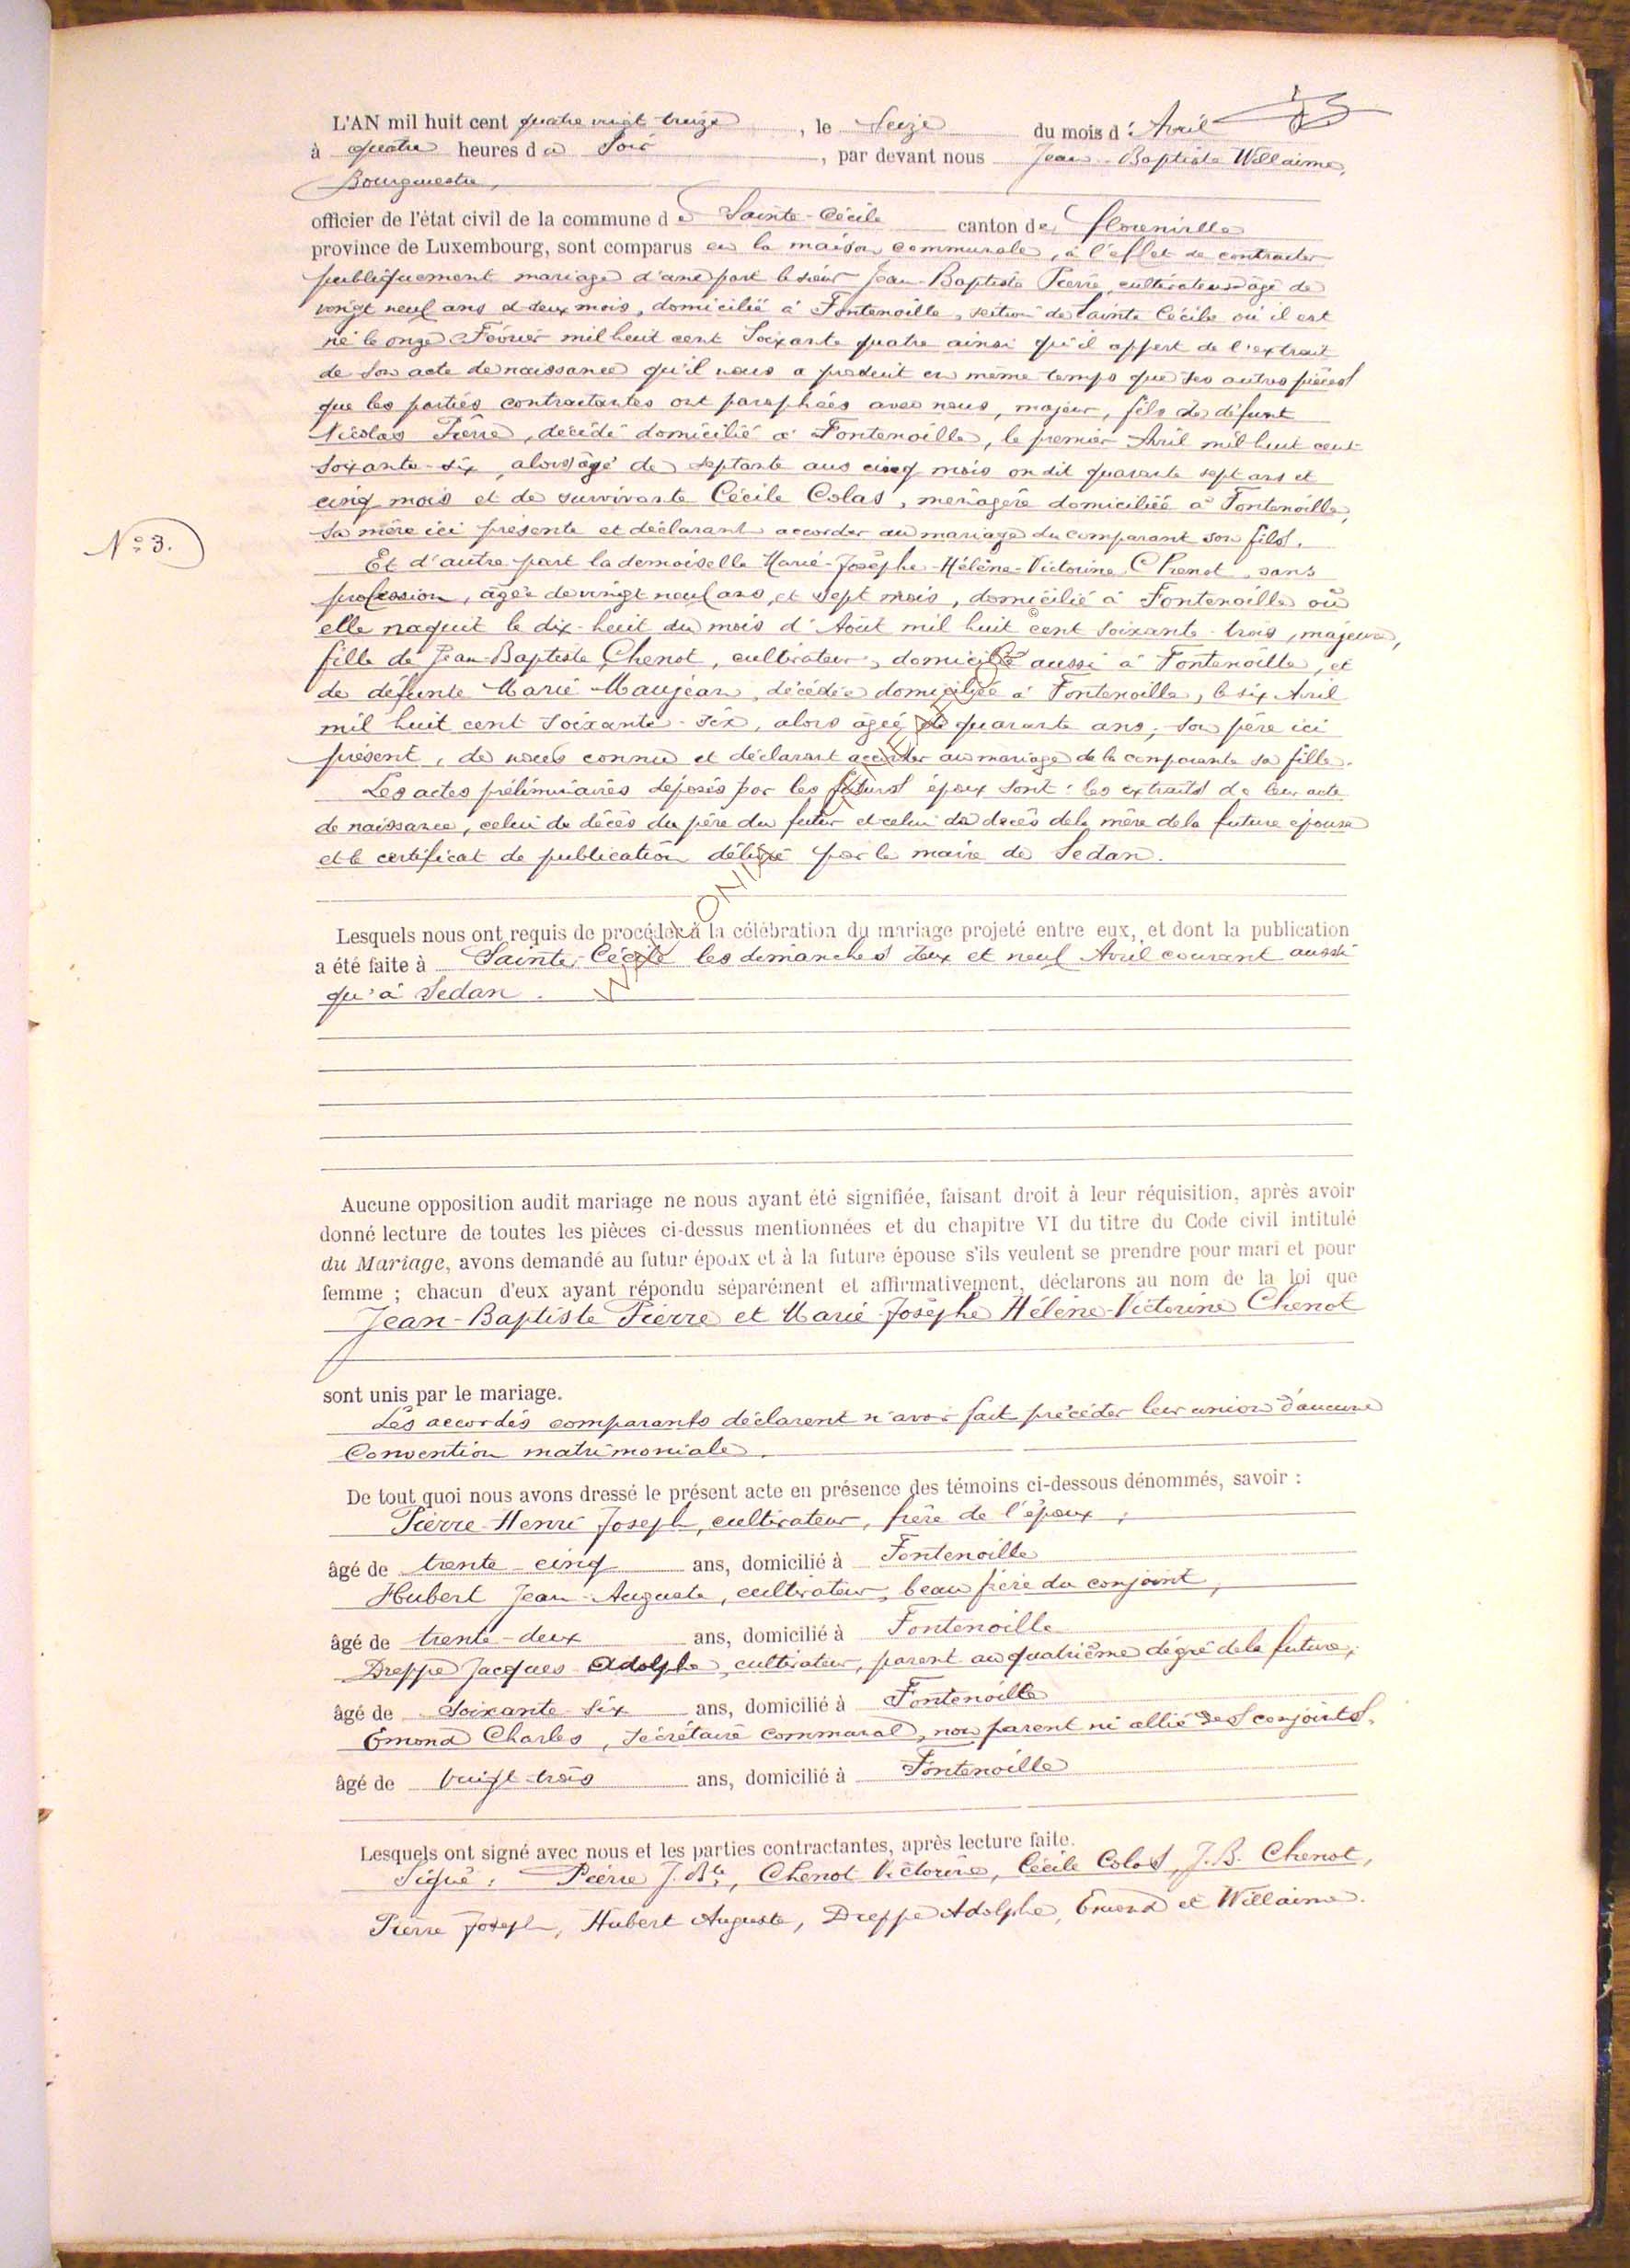 L'AN mil huit cent quatre vingt treize, le Seize du mois d'Avril
à quatre heures du Soir, par devant nous Jean-Baptiste Willaime,
Bourgmestre,
officier de l'état civil de la commune de Sainte-Cécile canton de Florenville
province de Luxembourg, sont comparus en la maison communale, à l'effet de contracter
publiquement mariage d'une part le sieur Jean-Baptiste Pierre, cultivateur âgé de
vingt neuf ans et deux mois, domicilié à Fontenoille, section de Sainte Cécile où il est
né le onze Février mil huit cent Soixante quatre ainsi qu'il appert de l'extrait
de son acte de naissance qu'il nous a produit en même temps que ses autres pièces
que les parties contractantes ont paraphées avec nous, majeur, fils de défunt
Nicolas Pierre, décédé domicilié à Fontenoille, le premier Avril mil huit cent
soixante-six, alors âgé de septante ans cinq mois on dit quarante sept ans et
cinq mois et de survivante Cécile Colas, menagère domiciliée à Fontenoille,
sa mère ici présente et déclarant accorder au mariage du comparant son fils.
N° 3.
Et d'autre part la demoiselle Marie-Josèphe-Hélène-Victorine Chenot, sans
profession, âgée de vingt neuf ans, et sept mois, domicilié à Fontenoille où
elle naquit le dix-huit du mois d'Août mil huit cent soixante-trois, majeure,
fille de Jean-Baptiste Chenot, cultivateur, domicilié aussi à Fontenoille, et
de défunte Marie Maujean, décédée domiciliée à Fontenoille, le six Avril
mil huit cent soixante-six, alors âgée de quarante ans; son père ici
présent, de nous connu et déclarant accorder au mariage de la comparante sa fille.
Les actes préliminaires déposés par les futurs époux sont: les extraits de leur acte
de naissance, celui de décès du père du futur et celui du décès de la mère de la future épouse
et le certificat de publication délivré par le maire de Sedan.
Lesquels nous ont requis de procéder à la célébration du mariage projeté entre eux, et dont la publication
a été faite à Sainte-Cécile les dimanches deux et neuf Avril courant aussi
qu'à Sedan.
Aucune opposition audit mariage ne nous ayant été signifiée, faisant droit à leur réquisition, après avoir
donné lecture de toutes les pièces ci-dessus mentionnées et du chapitre VI du titre du Code civil intitulé
du Mariage, avons demandé au futur époux et à la future épouse s'ils veulent se prendre pour mari et pour
femme ; chacun d'eux ayant répondu séparément et affirmativement, déclarons au nom de la loi que
Jean-Baptiste Pierre et Marie-Josèphe Hélène-Victorine Chenot
sont unis par le mariage.
Les accordés comparants déclarent n'avoir fait précéder leur union d'aucune
Convention matrimoniale.
De tout quoi nous avons dressé le présent acte en présence des témoins ci-dessous dénommés, savoir :
Pierre-Henri Joseph, cultivateur, frère de l'époux,
âgé de trente-cinq ans, domicilié à Fontenoille
Hubert Jean-Auguste, cultivateur, beau frère du conjoint,
âgé de trente-deux ans, domicilié à Fontenoille
Dreppe Jacques-Adolphe, cultivateur, parent au quatrième dégré de la future,
âgé de soixante-six ans, domicilié à Fontenoille
Emond Charles, secrétaire communal, non parent ni allié des conjoints,
âgé de vingt-trois ans, domicilié à Fontenoille
Lesquels ont signé avec nous et les parties contractantes, après lecture faite.
Signé: Pierre J. Bte, Chenot Victorine, Cécile Colas, J.B. Chenot,
Pierre Joseph, Hubert Auguste, Dreppe Adolphe, Emond et Willaime.